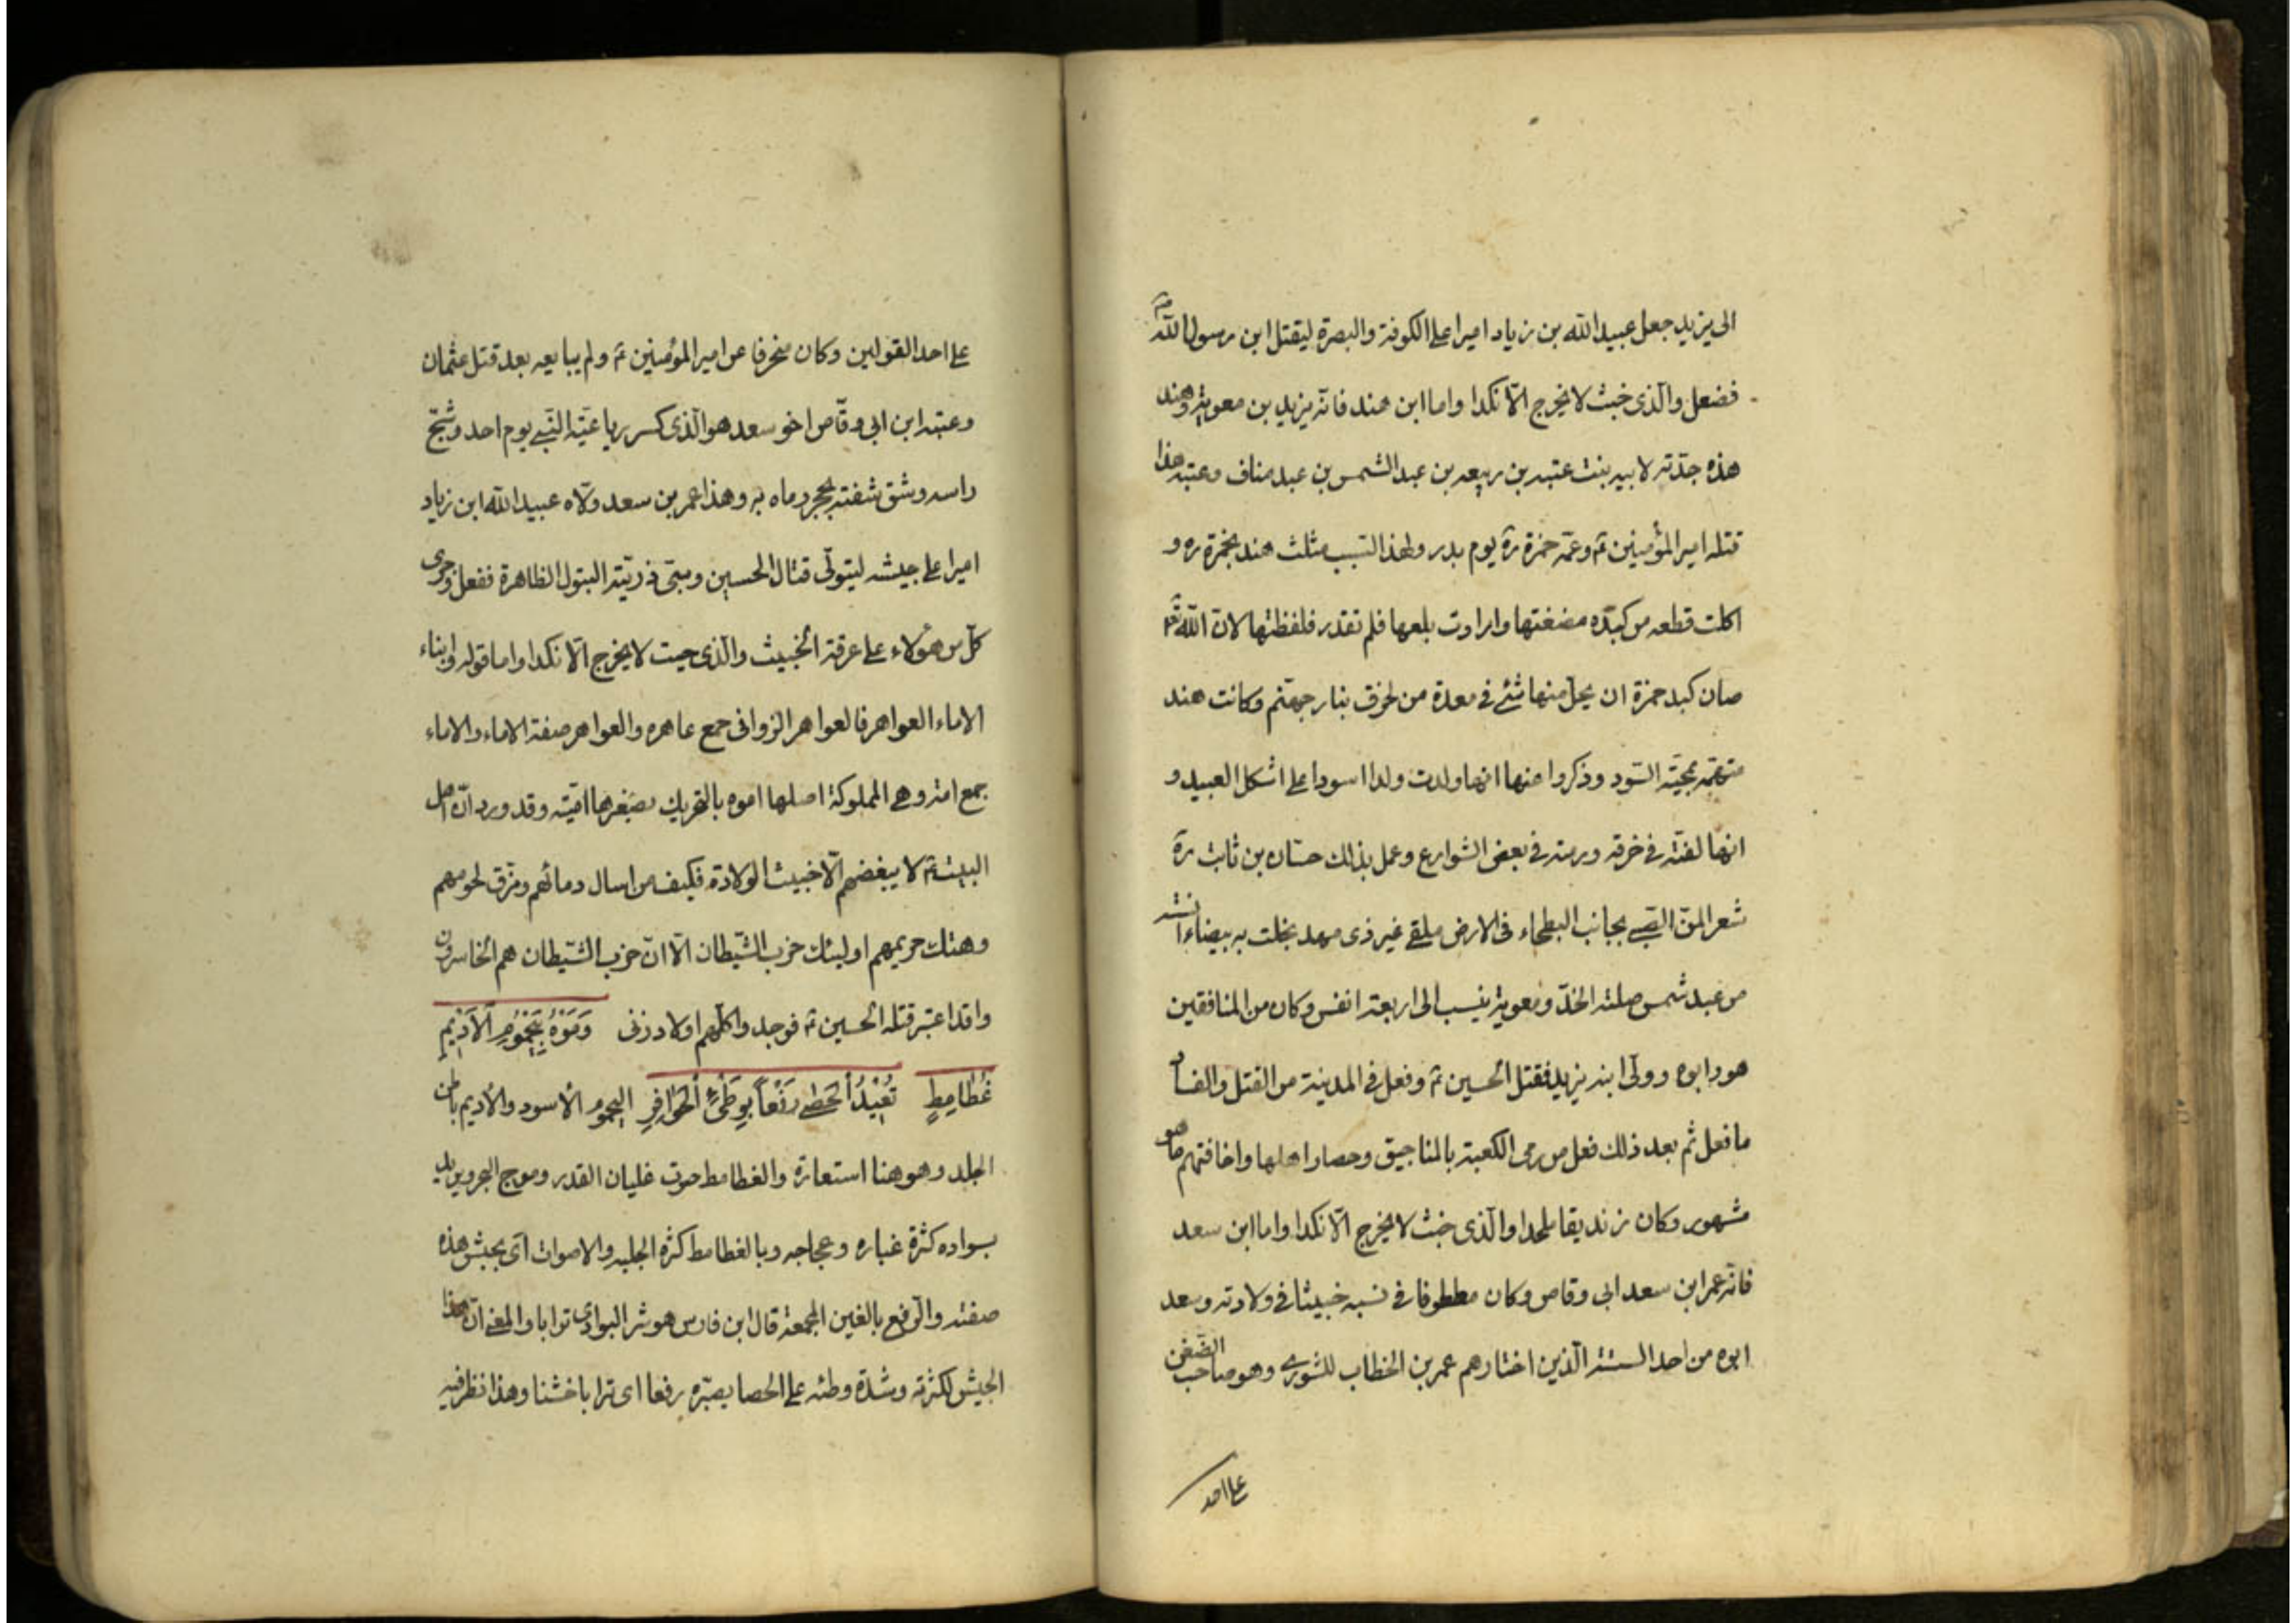 الى يزيد جعل عبيد الله بن زياد اميرا على الكوفة والبصرة ليقتل ابن رسول الله
ففعل والذى خبث لا يخرج الّا نكدا واما ابن هند فانّه يزيد بن معوية وهند
هذه جدّته لابيه بنت عتبه بن ربيعه بن عبد الشمس بن عبد مناف وعتبه هذا
قتله امير المؤمنين ع وعمّه حمزة رة يوم بدر ولهذا السّبب مثلث هند بحمزة ره و
اكلت قطعه من كبده مضغتها وارادت بلعها فلم تقدر فلفظتها لان الله تع
صان كبد حمزة ان يحلّ منها شئ فى معدة من تحرق بنار جهنّم وكانت هند
متهمّه بمحبّة السّود وذكروا عنها انها ولدت ولدا اسودا على اشكل العبيد و
انها لفته فى خرقه ورمته فى بعض الشوارع وعمل بذلك حسّان بن ثابت رة
شعر لمن الصّبى بجانب البطحاء فى الارض ملقى غير ذى مهد نجلت به بيضاء آنسة
من عبد شمس صلتة الخدّ ومعوية ينسب الى اربعة انفس وكان من المنافقين
هو وابوه وولّى ابنه يزيد فقتل الحسين ع وفعل فى المدينة من القتل والفساد
ما فعل ثم بعد ذلك فعل من رمى الكعبة بالمناجيق وحصار اهلها واخافتهم ما هو
مشهور وكان زنديقا ملحدا والّذى خبث لا يخرج الّا نكدا واما ابن سعد
فانّه عمر ابن سعد ابى وقاص وكان فى نسبه خبيثا فى ولادته وسعد
ابوه من احد الستة الّذين اختارهم عمر بن الخطاب للشورى وهو صاحب الضغن
على احد
على احد القولين وكان منحرفا عن امير المؤمنين ع ولم يبايعه بعد قتل عثمان
وعتبه ابن ابى وقّاص اخو سعد هو الّذى كسر رباعيّة النّبى يوم احد وشجّ
راسه وشق شفته بحجر رماه به وهذا عمر بن سعد ولّاه عبيد الله ابن زياد
اميرا على جيشه ليتولّى قتال الحسين وسبى ذريّته البتول الطاهرة ففعل وجرى
كلّ من هؤلاء على عرقة الخبيث والّذى خبث لا يخرج الّا نكدا واما قوله وابناء
الاماء العواهر فالعواهر الزوانى جمع عاهره والعواهر صفة الاماء والاماء
جمع امة وهى المملوكة اصلها اموه بالتحريك تصغيرها اميّه وقد ورد انّ اهل
البيت ع لا يبغضهم الّا خبيث الولادة فكيف من اسال دمائهم ومزّق لحومهم
وهتك حريمهم اوليئك حزب الشّيطان الّا انّ حزب الشّيطان هم الخاسرون
واقد اعتبر قتله الحسين ع فوجد واكلّهم اولاد زنى يَحْمُومِ الْأَدِيمِ
غُطَامِطٍ تُعِيْدُ الْحَصٰى رَفْغًا بِوَطْئِ الْحَوَافِرِ اليحموم الأسود والأديم باطن
الجلد وهو هنا استعارة والغطامط صوت غليان القدر وموج البحر ويريد
بسواده كثرة غباره وعجاجه وبالغطامط كثره الجلبه والاصوات اى بجيش هذه
صفته والرّفغ بالغين المعجمة قال ابن فارس هو شر البوادى ترابا والمعنى انّ هذا
الجيش لكثرته وشدّة وطئه على الحصا يصيّره رفغا اى ترابا خشنا وهذا نظر فيه